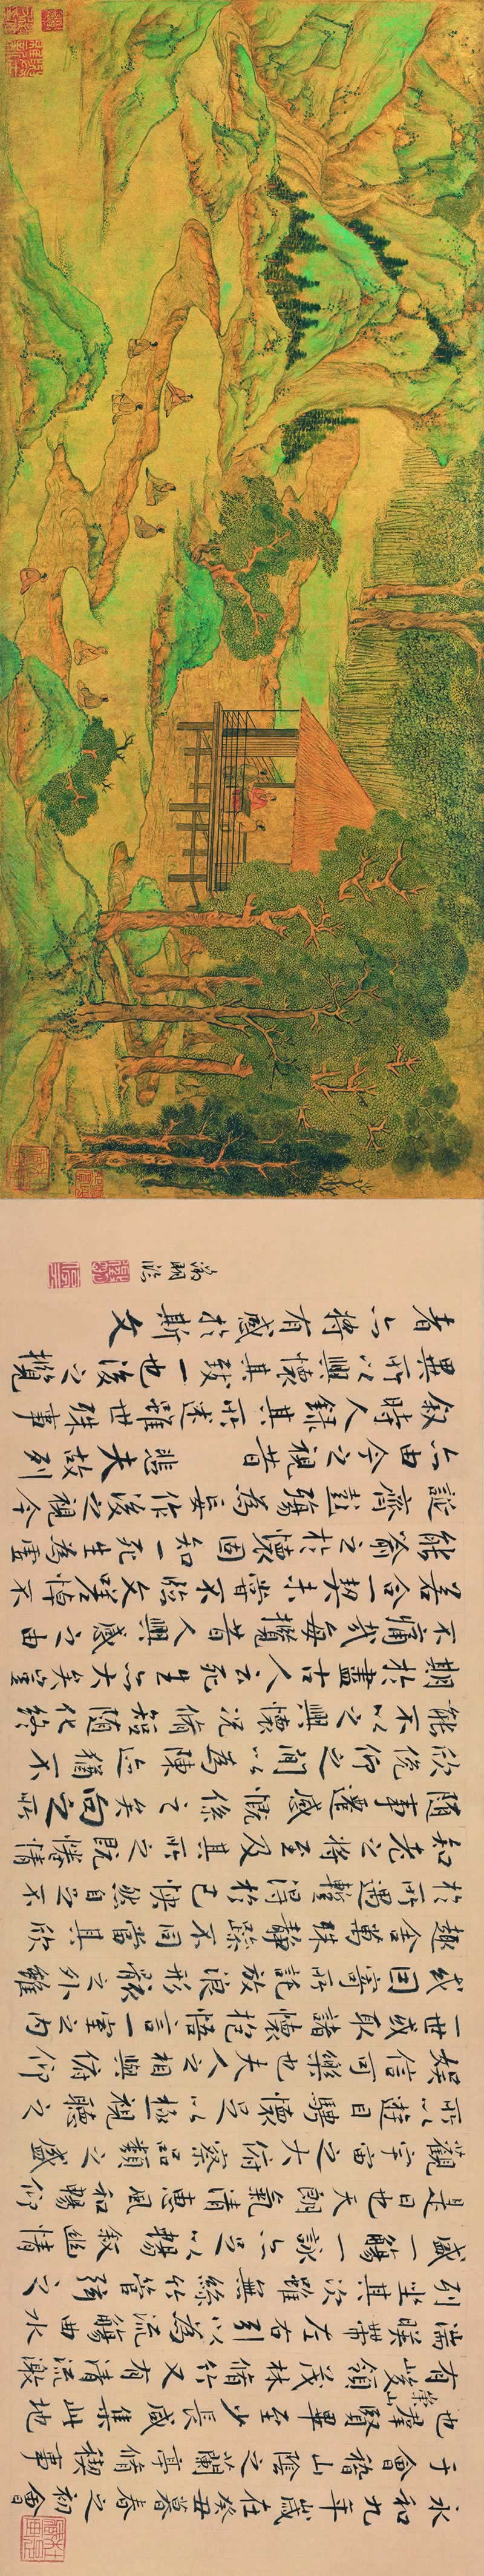 永和九年歲在癸丑暮春之初會
于會稽山陰之蘭亭脩稧事
也羣賢畢至少長咸集此地
有崇山峻領茂林脩竹又有清流激
湍暎帶左右引以為流觴曲水
列坐其次雖無絲竹管弦之
盛一觴一詠亦足以暢敘幽情
是日也天朗氣清惠風和暢仰
觀宇宙之大俯察品類之盛
所以遊目騁懷足以極視聽之
娛信可樂也夫人之相與俯仰
一世或取諸懷抱悟言一室之內
或因寄所託放浪形骸之外雖
趣舍萬殊靜躁不同當其欣
於所遇暫得於己快然自足不
知老之將至及其所之既惓情
隨事遷感慨係之矣向之所
欣俛仰之間以為陳迹猶不
能不以之興懷況脩短隨化終
期於盡古人云死生亦大矣豈
不痛哉每攬昔人興感之由
若合一契未嘗不臨文嗟悼不
能喻之於懷固知一死生為虛
誕齊彭殤為妄作後之視今
亦由今之視昔悲夫故列
敘時人錄其所述雖世殊事
異所以興懷其致一也後之攬
者亦將有感於斯文
徵明臨